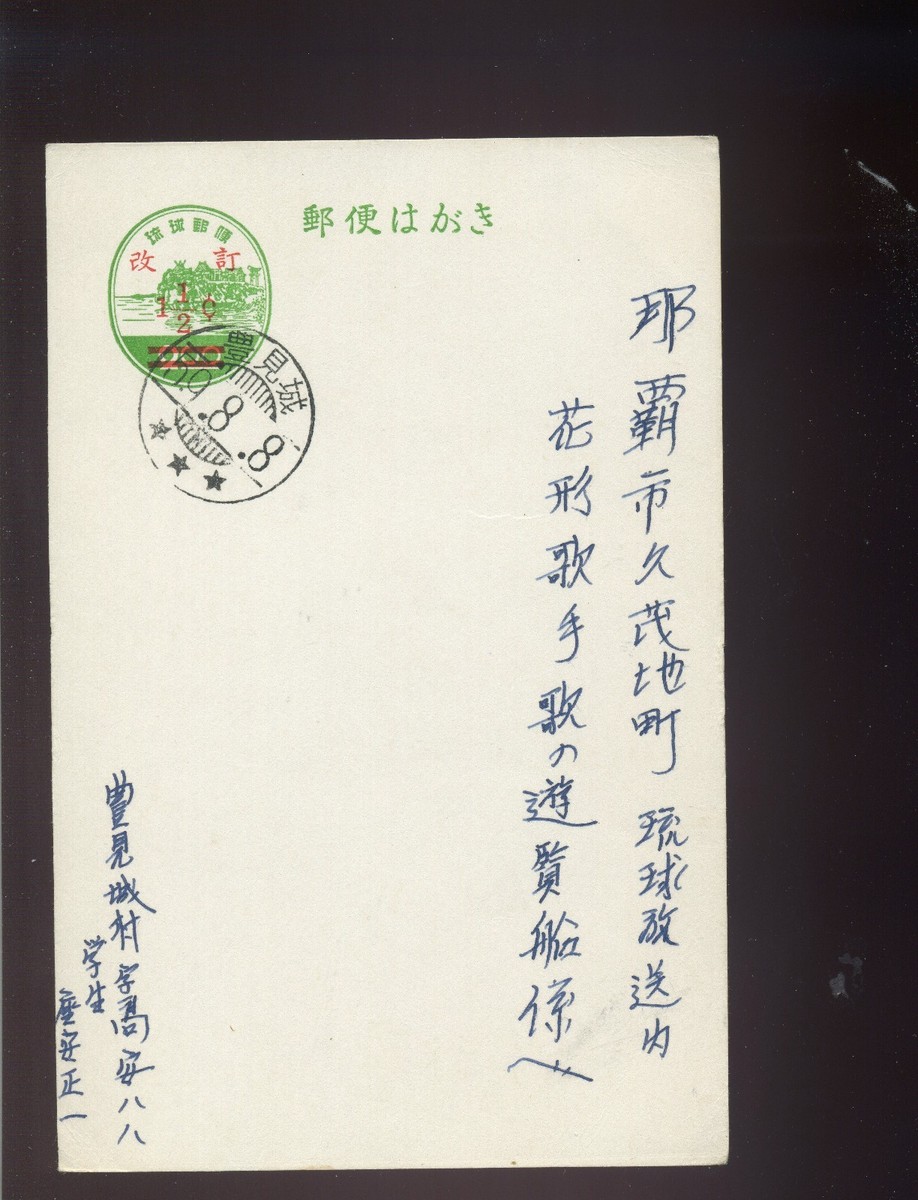 郵便はがき
琉球郵便
改訂
1 1/2 ¢
豊見城
59.8.8
那覇市久茂地町 琉球放送内
花形歌手歌の遊賢船係へ
豊見城村字高安八八
学生
座安正一